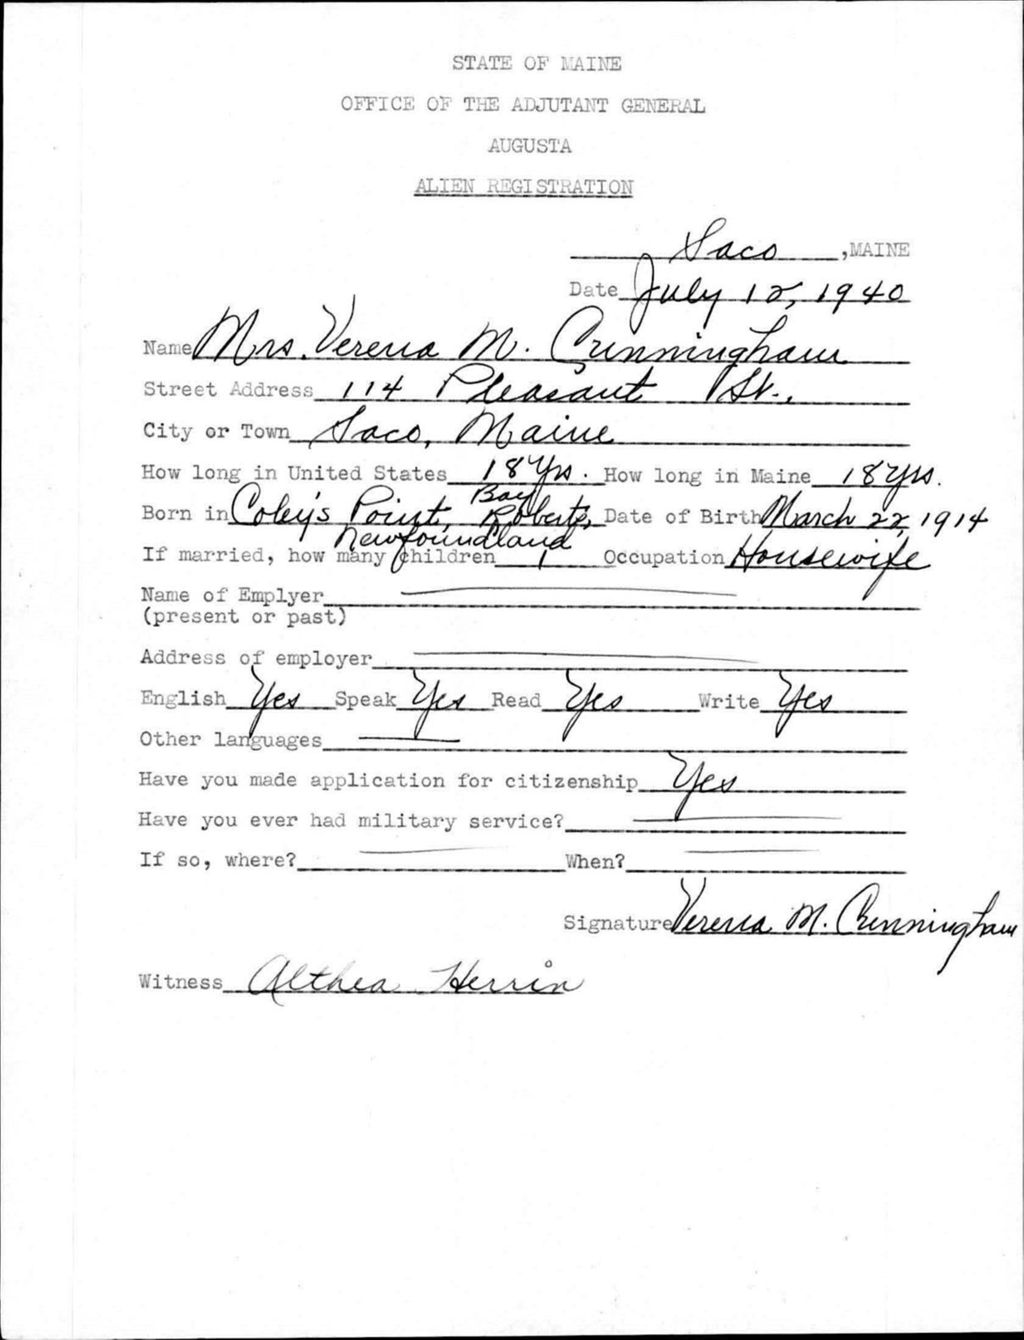 STATE OF MAINE
OFFICE OF THE ADJUTANT GENERAL
AUGUSTA
ALIEN REGISTRATION
Saco, MAINE
Date July 12, 1940
Name Mrs. Verena M. Cunningham
Street Address 114 Pleasant St.,
City or Town Saco, Maine
How long in United States 18 Yrs. How long in Maine 18 yrs.
Born in Coley's Point, Bay Roberts, Newfoundland Date of Birth March 22, 1914
If married, how many children 1 Occupation Housewife
Name of Emplyer
(present or past)
Address of employer
English Yes Speak Yes Read Yes Write Yes
Other languages
Have you made application for citizenship Yes
Have you ever had military service?
If so, where? When?
Signature Verena M. Cunningham
Witness Althea Herrin